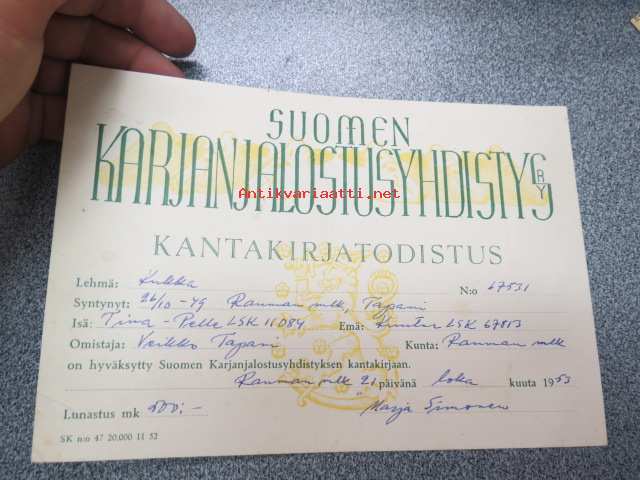 SUOMEN
KARJANJALOSTUSYHDISTYS RY
Antikvariaatti.net
KANTAKIRJATODISTUS
Lehmä: Kukka N:o 67531
Syntynyt: 26/10 -49 Rauman mlk, Tapani
Isä: Tina - Pelle LSK 11084 Emä: LSK 67813
Omistaja: Veikko Tapani Kunta: Rauman mlk
on hyväksytty Suomen Karjanjalostusyhdistyksen kantakirjaan.
Rauman mlk 21 päivänä loka kuuta 1953
Lunastus mk 500:- Marja Simonen
SK n:o 47 20.000 11 52